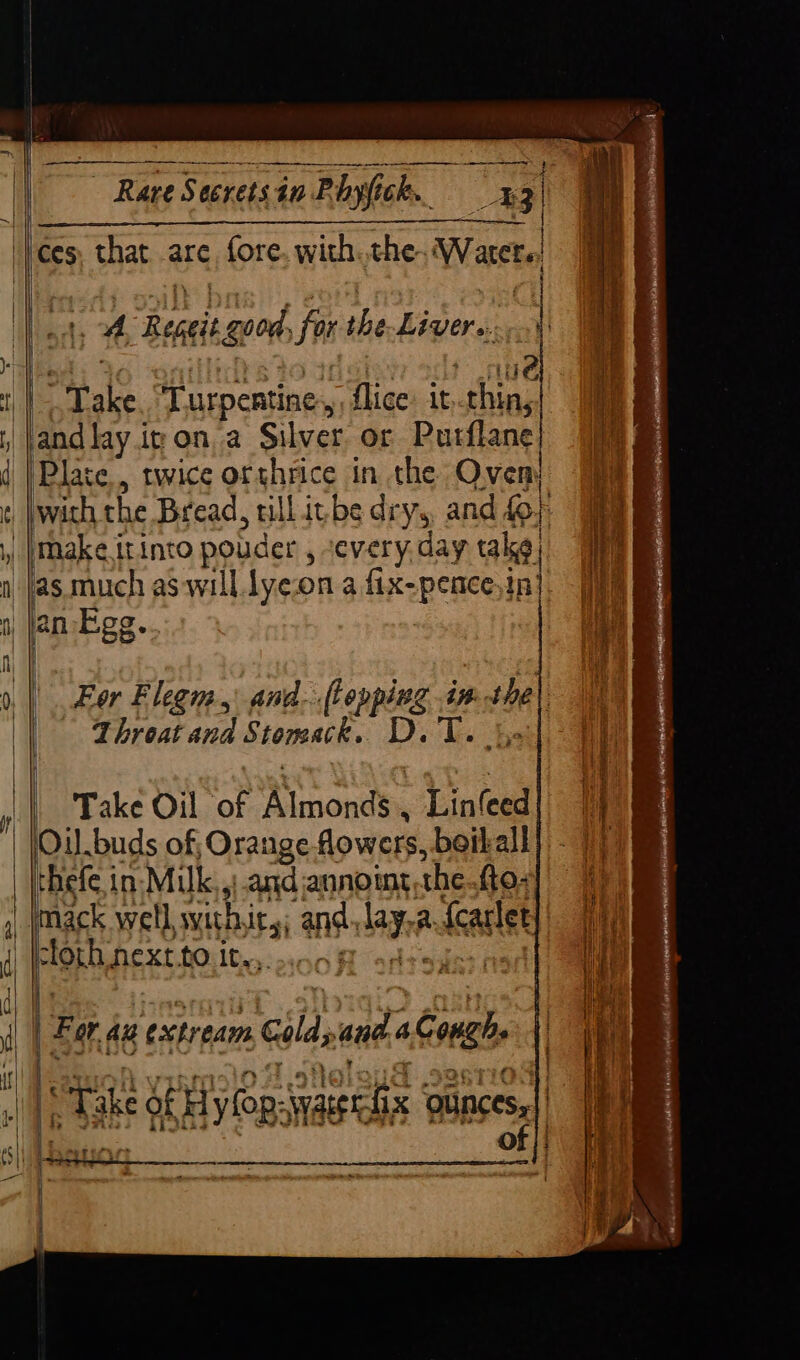 Rare Secrets in Phyſick. 23
ces, that are ſore. with the Water.
A Receit good, for the Liver.
Take Turpentine, ſlice it thin,
and lay it on a Silver or Purſlane
Plate, twice or thrice in the Oven
with the Bread, till it be dry, and ſo
make it into pouder, every day take
as much as will lye on a ſix-pence, in
an Egg.
For Flegm, and ſtopping in the
Throat and Stomack. D. T.
Take Oil of Almonds, Linſeed
Oil, buds of Orange flowers, boil all
theſe in Milk, and annoint the ſto-
mack well with it, and lay a ſcarlet
cloth next to it.
For an extream Cold, and a Cough.
Take of Hyſop-water ſix ounces,
of